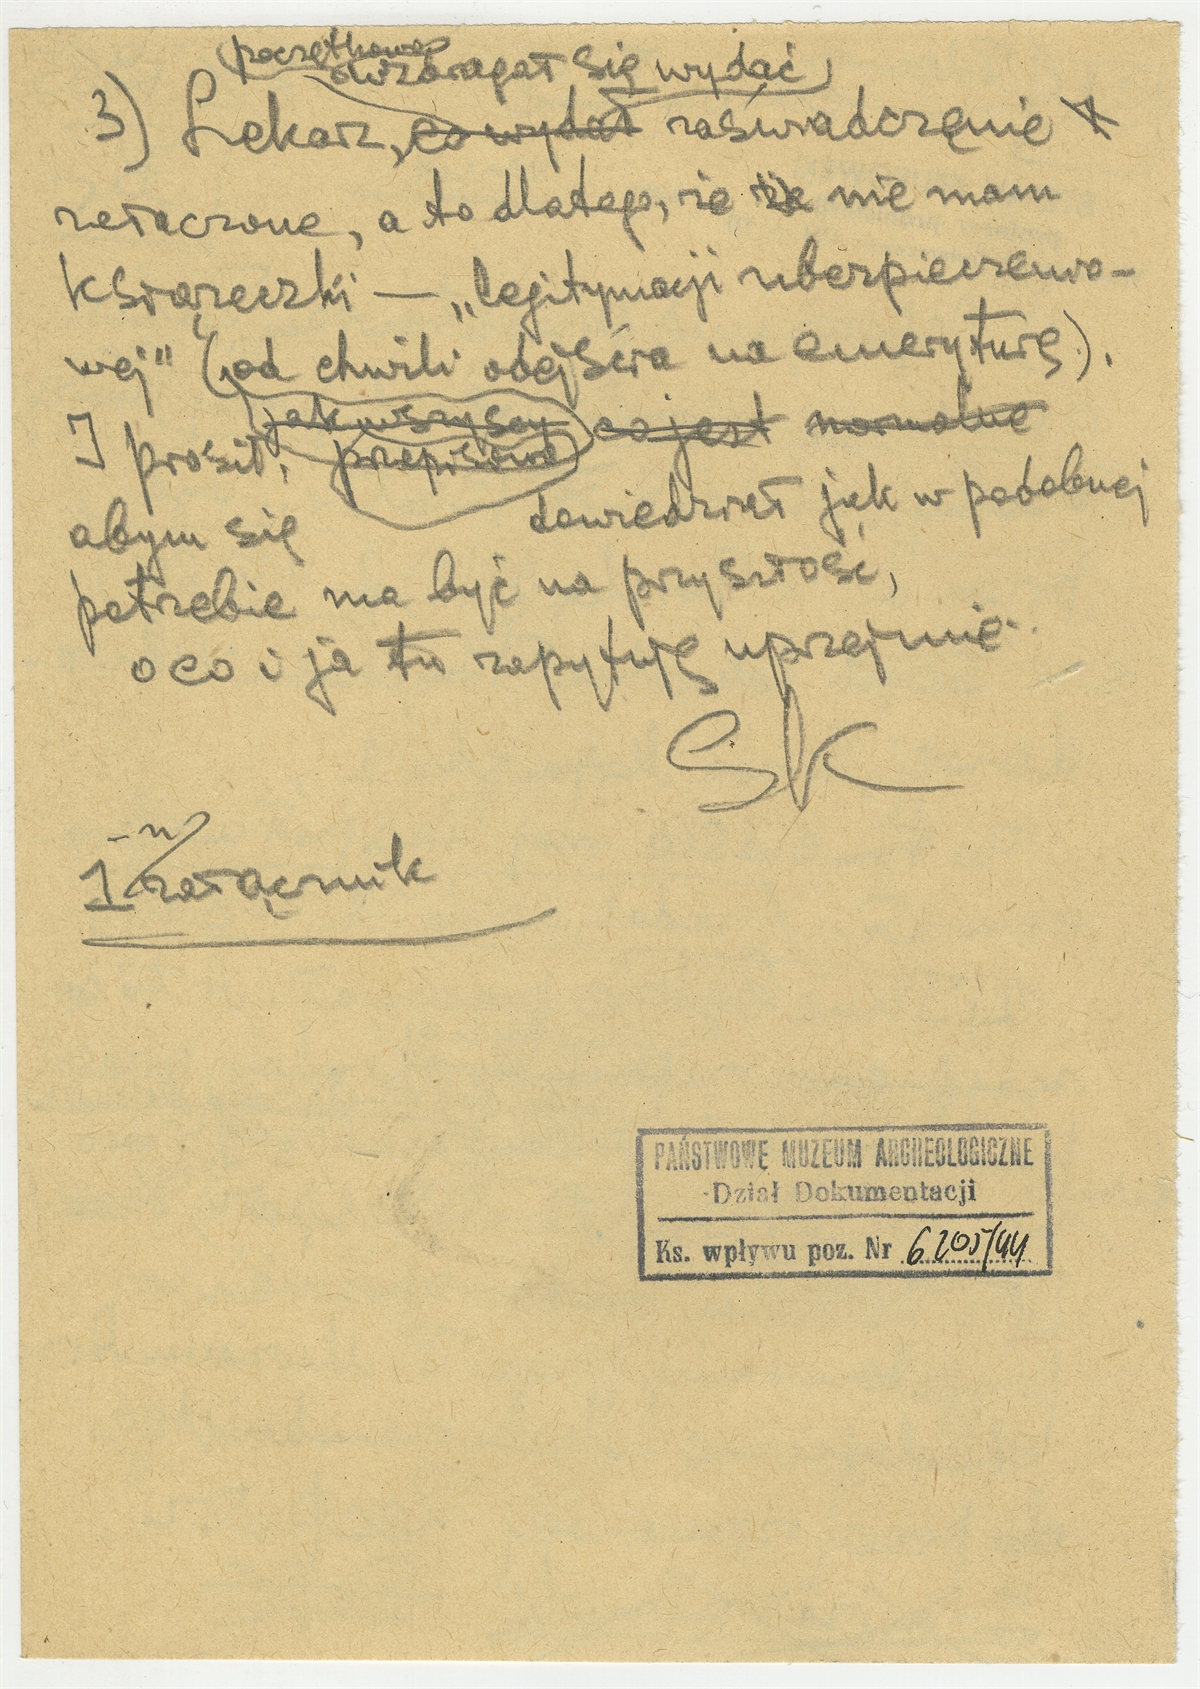 początkowo
wzdragał się wydać
3) Lekarz, co wydał zaświadczenie
załączone, a to dlatego, że nie mam
książeczki — „legitymacji ubezpieczenio-
wej" (od chwili odejścia na emeryturę).
jak wszyscy co jest normalne
I prosił, przepisowo
abym się dowiedział jak w podobnej
potrzebie ma być na przyszłość,
o co i ja tu zapytuję uprzejmie.
SK
1 załącznik
PAŃSTWOWE MUZEUM ARCHEOLOGICZNE
Dział Dokumentacji
Ks. wpływu poz. Nr 6205/44